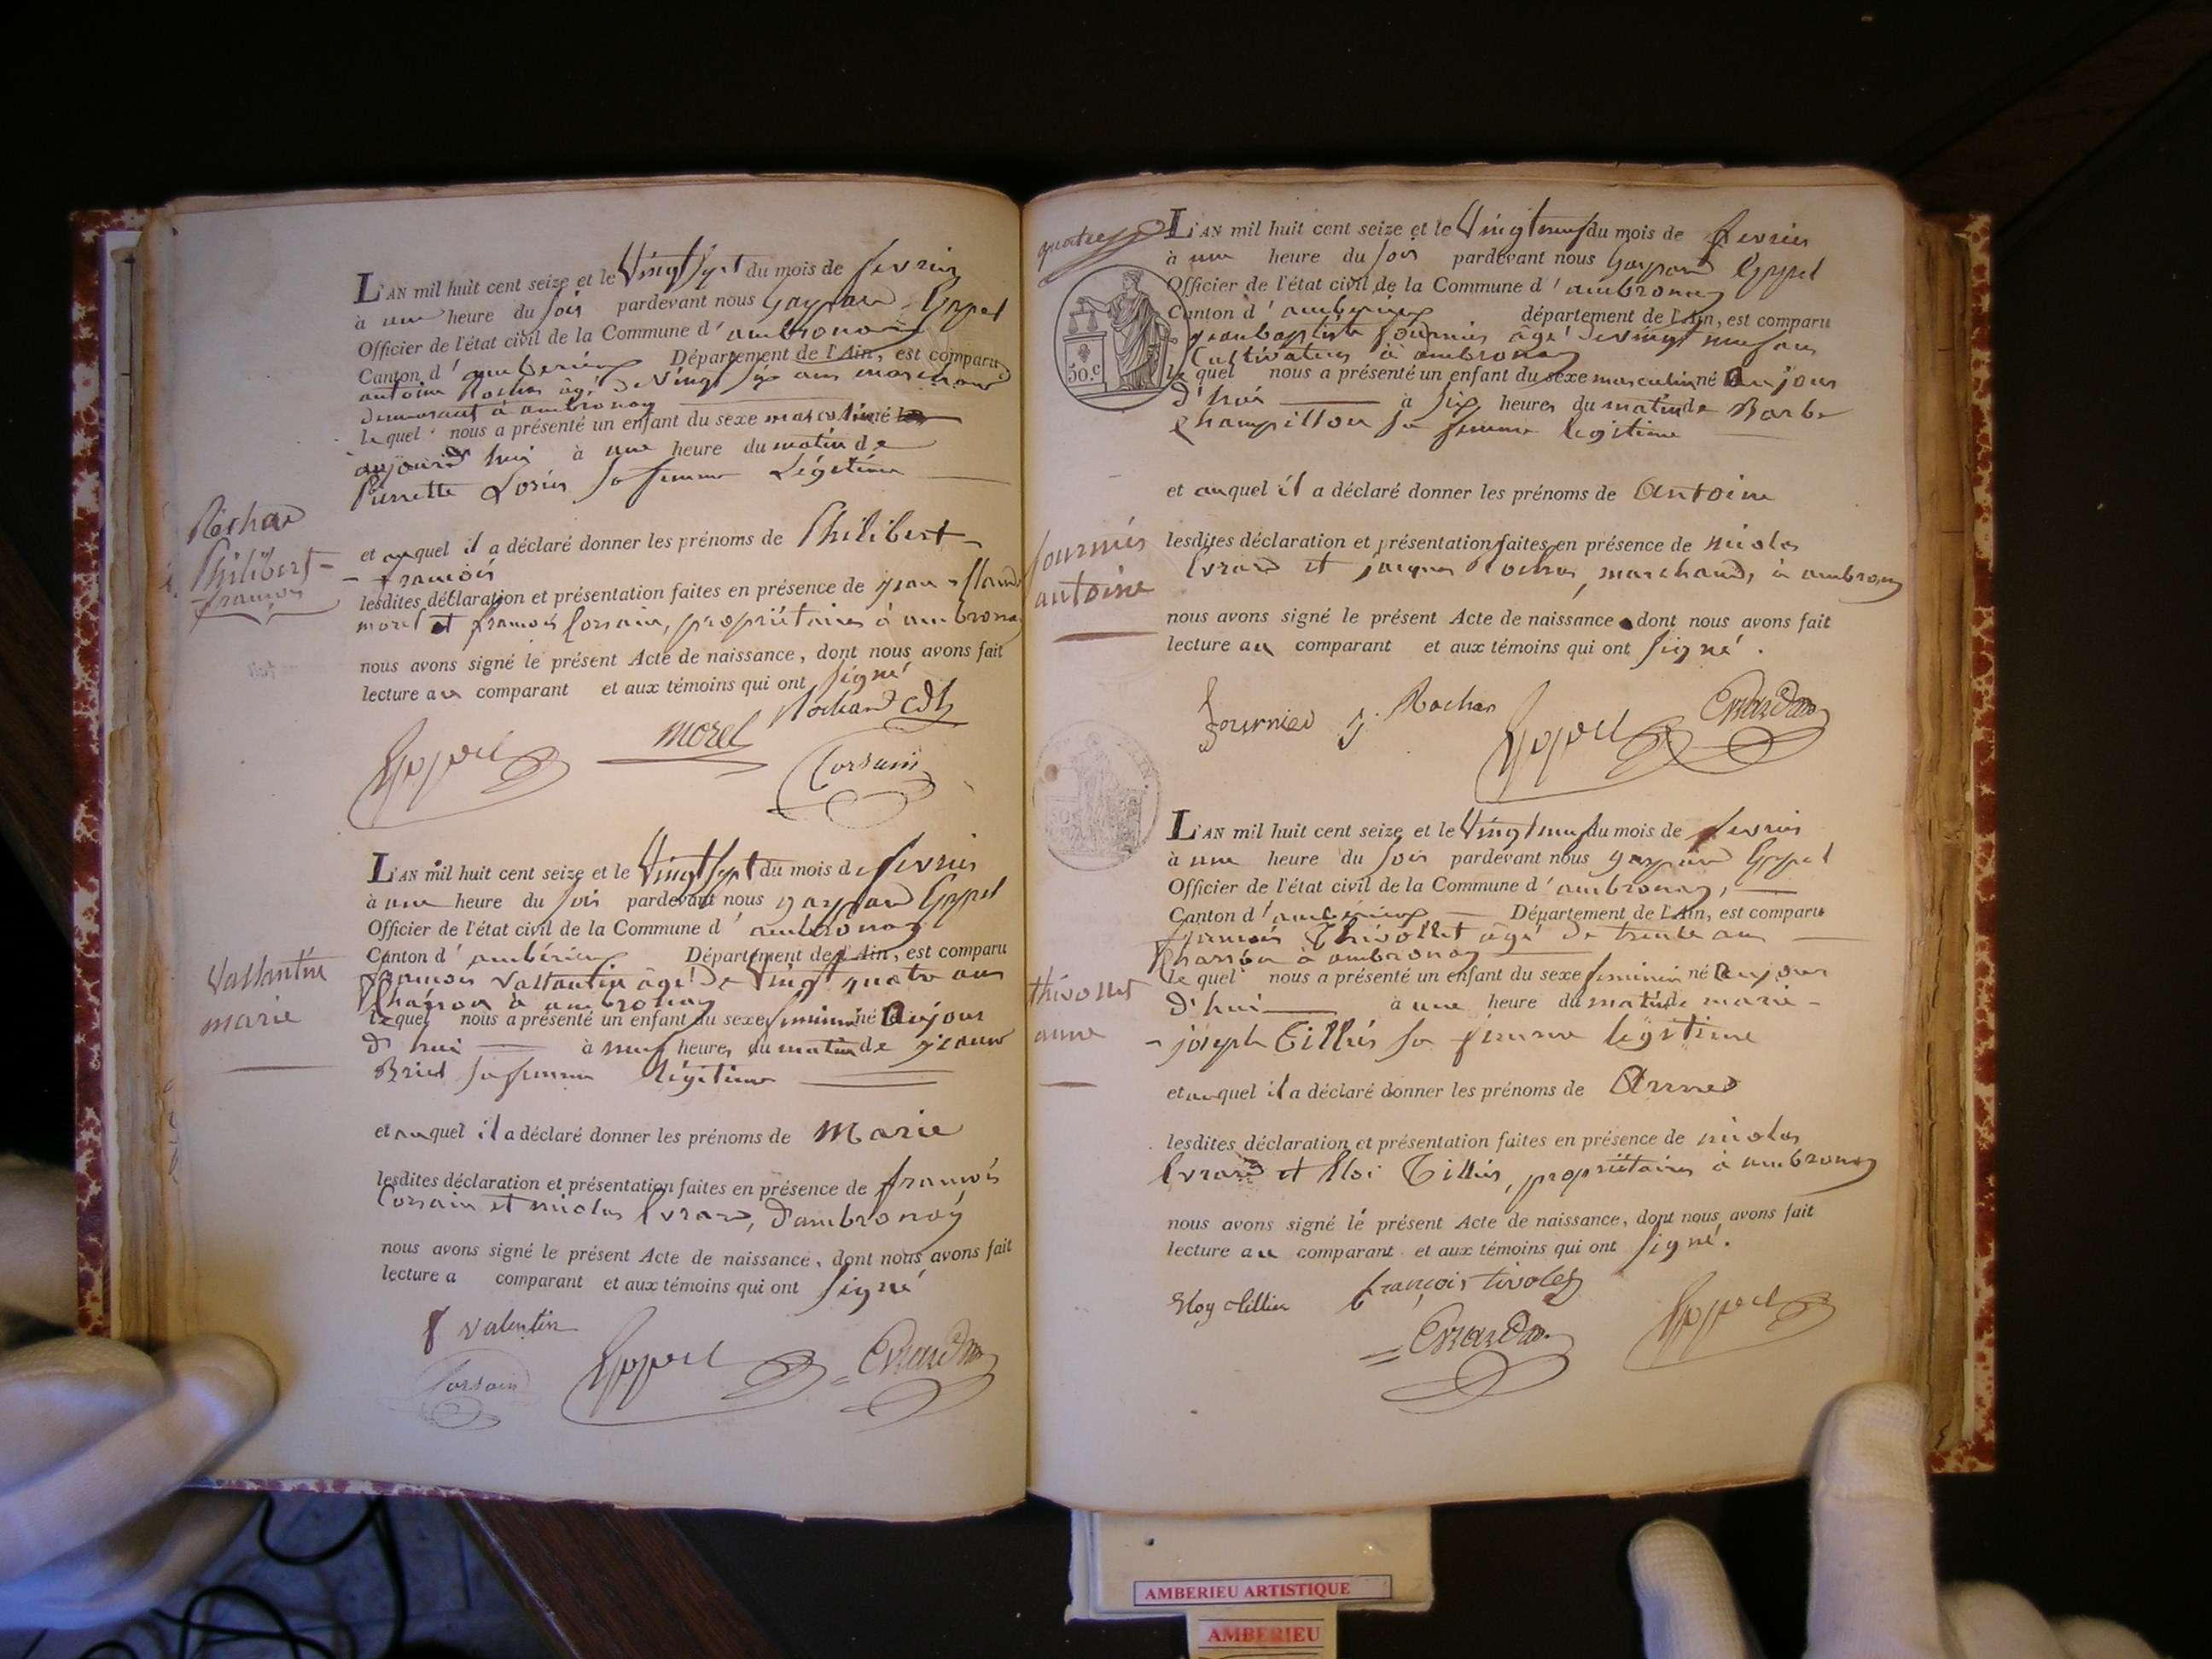 L'AN mil huit cent seize et le Vingt Sept du mois de fevrier
à une heure du Soir pardevant nous Gaspard Goppel
Officier de l'état civil de la Commune d'ambronay
Canton d'amberieux Département de l'Ain, est comparu
antoine Rochas âgé de Vingt Six ans marchand
demeurant à ambronay
lequel nous a présenté un enfant du sexe masculin né
aujourd'hui à une heure du matin de
Pierrette Sa femme Légitime
Philibert-
françois
et auquel il a déclaré donner les prénoms de Philibert
- françois
lesdites déclaration et présentation faites en présence de jean-
morel et françois Corsain, propriétaires à ambronay
nous avons signé le présent Acte de naissance, dont nous avons fait
lecture au comparant et aux témoins qui ont Signé
morel
Corsain
L'AN mil huit cent seize et le Vingt Sept du mois de fevrier
à une heure du Soir pardevant nous gaspard Goppel
Officier de l'état civil de la Commune d'ambronay
Canton d'ambérieux Département de l'Ain, est comparu
françois Vallantin âgé de Vingt quatre ans
Charron à ambronay
Vallantin
marie
lequel nous a présenté un enfant du sexe feminin né Aujour
d'hui à neuf heures du matin de jeanne
Sa femme légitime
et auquel il a déclaré donner les prénoms de Marie
lesdites déclaration et présentation faites en présence de françois
Corsain et nicolas Evrard, d'ambronay
nous avons signé le présent Acte de naissance, dont nous avons fait
lecture a comparant et aux témoins qui ont Signé
f valentin
Corsain
L'AN mil huit cent seize et le Vingt neuf du mois de fevrier
à une heure du Soir pardevant nous Gaspard Goppel
Officier de l'état civil de la Commune d'ambronay
Canton d'amberieux département de l'Ain, est comparu
jean baptiste fournier âgé de vingt neuf ans
Cultivateur à ambronay
50.c
lequel nous a présenté un enfant du sexe masculin né Aujour
d'hui à Six heures du matin de Barbe
Champillon Sa femme legitime
et auquel il a déclaré donner les prénoms de Antoine
fournier
antoine
lesdites déclaration et présentation faites en présence de nicolas
Evrard et jacques Rochas, marchands, à ambronay
nous avons signé le présent Acte de naissance dont nous avons fait
lecture au comparant et aux témoins qui ont Signé.
fournier j. Rochas
L'AN mil huit cent seize et le Vingt neuf du mois de fevrier
à une heure du Soir pardevant nous gaspard Goppel
Officier de l'état civil de la Commune d'ambronay,
Canton d'ambérieux Département de l'Ain, est comparu
françois Thivollet âgé de trente ans
Charron à ambronay
thivollet
anne
lequel nous a présenté un enfant du sexe feminin né Aujour
d'hui à une heure du matin de marie-
- joseph Tillier Sa femme légitime
et auquel il a déclaré donner les prénoms de Anne
lesdites déclaration et présentation faites en présence de nicolas
Evrard et Eloi Tillier, propriétaires à ambronay
nous avons signé le présent Acte de naissance, dont nous avons fait
lecture au comparant et aux témoins qui ont Signé.
Eloy tillier françois tivolet
AMBERIEU ARTISTIQUE
AMBERIEU